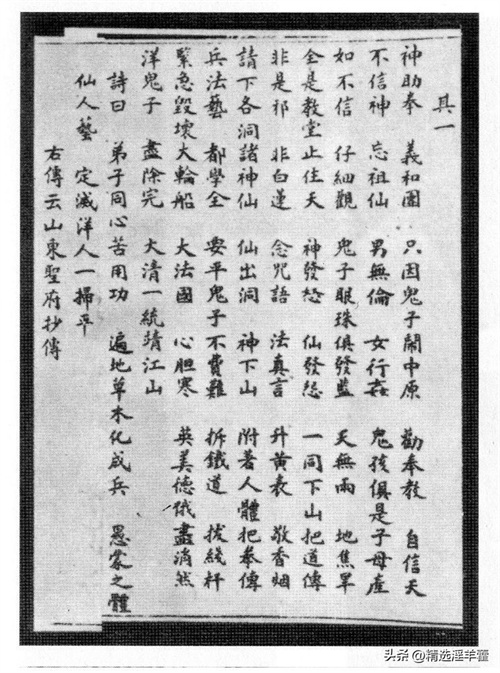 其一
神助拳 義和團 只因鬼子鬧中原 勸奉教 自信天
不信神 忘祖仙 男無倫 女行姦 鬼孩俱是子母產
如不信 仔細觀 鬼子眼珠俱發藍 天無雨 地焦旱
全是教堂止住天 神發怒 仙發怨 一同下山把道傳
非是邪 非白蓮 念咒語 法真言 升黃表 敬香烟
請下各洞諸神仙 仙出洞 神下山 附著人體把拳傳
兵法藝 都學全 要平鬼子不費難 拆鐵道 拔綫杆
緊急毀壞大輪船 大法國 心胆寒 英美德俄盡消然
洋鬼子 盡除完 大清一統靖江山
詩曰 弟子同心苦用功 遍地草木化成兵 愚蒙之體
仙人藝 定滅洋人一掃平
右傳云山東聖府抄傳
头条 @精选淫羊藿